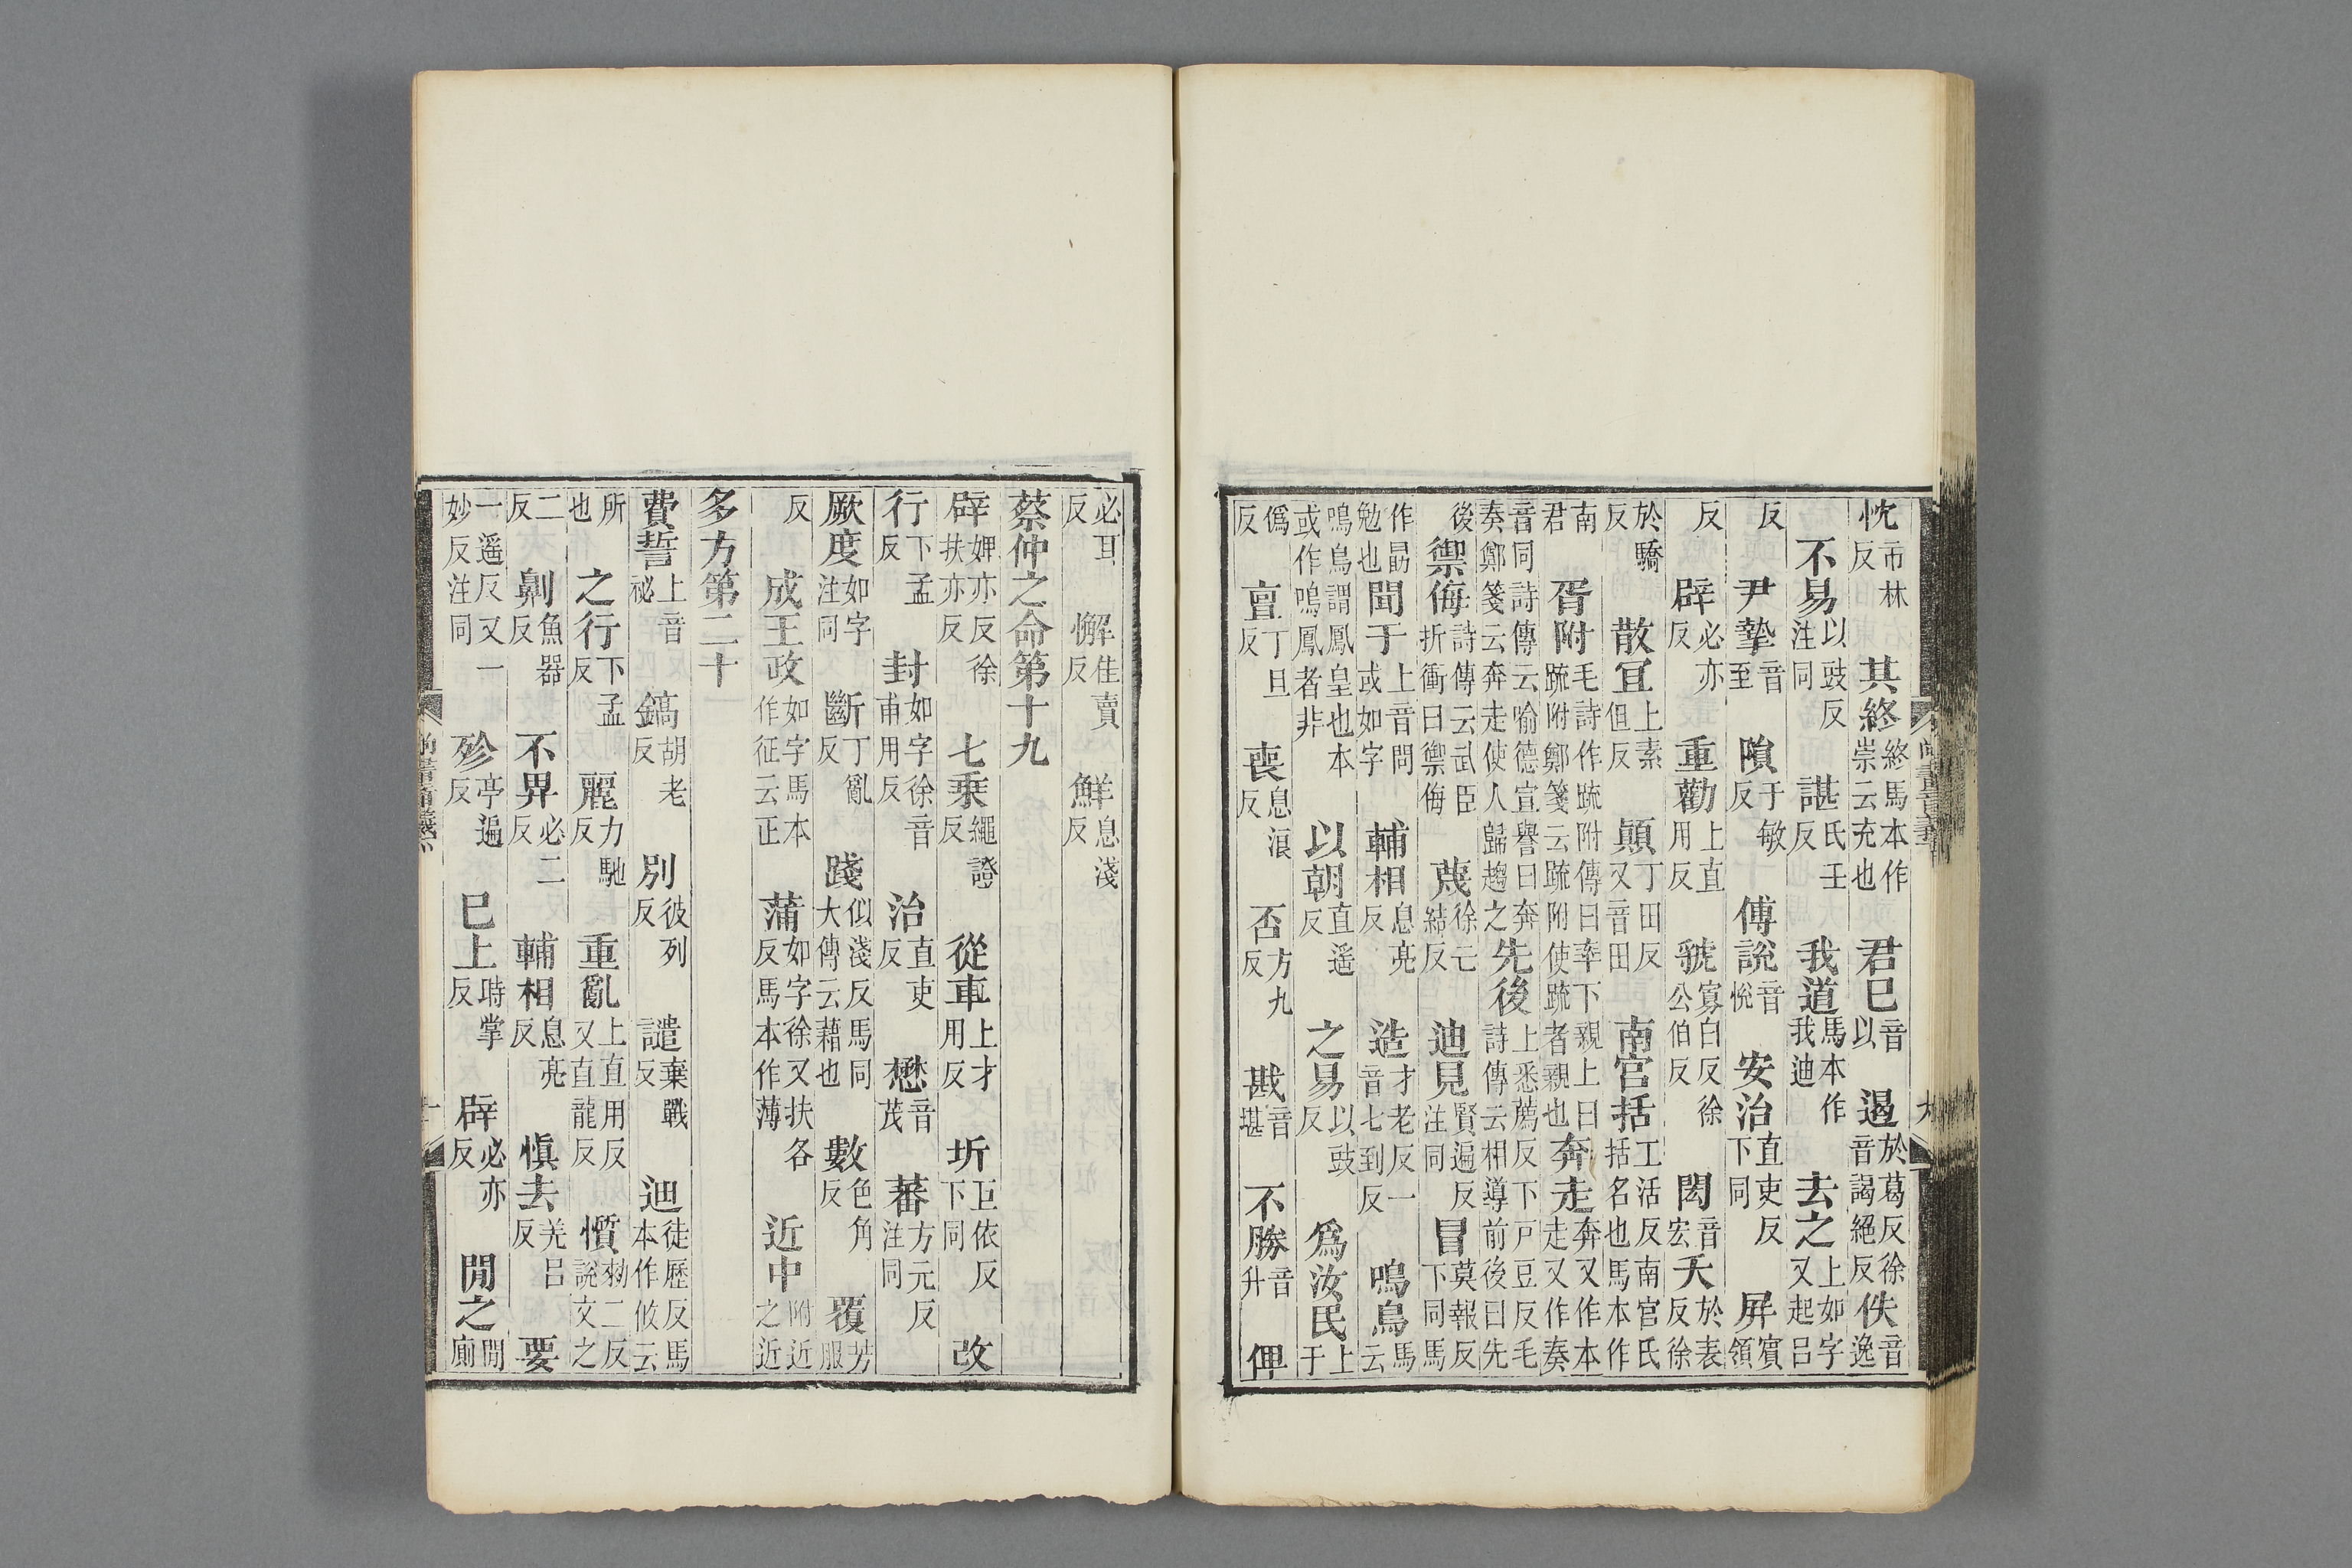 忱市林反 其終終馬本作崇云充也 君巳音以 遏於葛反徐音謁絕反 佚音逸
不易以豉反注同 諶氏壬反 我道馬本作我迪 去之上如字又起呂
反 尹摯音至 隕于敏反 傅說音悅 安治直吏反下同 屏賓領
反 辟必亦反 重勸上直用反 虢寡白反徐公伯反 閎音宏 夭於表反徐
於驕反 散宜上素但反 顚丁田反又音田 南宮括工活反南宮氏括名也馬本作
南君 胥附毛詩作䟽附傳曰率下親上曰䟽附鄭箋云䟽附使䟽者親也 奔走奔又作本走又作奏
音同詩傳云喻德宣譽曰奔奏鄭箋云奔走使人歸趨之 先後上悉薦反下戸豆反毛詩傳云相導前後曰先
後 禦侮詩傳云武臣折衝曰禦侮 蔑徐亡結反 迪見賢遍反注同 冒莫報反下同馬
作勗勉也 聞于上音問或如字 輔相息亮反 造才老反一音七到反 鳴鳥馬云
鳴鳥謂鳳皇也本或作鳴鳳者非 以朝直遥反 之易以豉反 爲汝民上于
僞反 亶丁旦反 喪息浪反 否方九反 戡音堪 不勝音升 俾
尚書音義
九
必耳反 懈佳賣反 鮮息淺反
蔡仲之命第十九
辟婢亦反徐扶亦反 七乘繩證反 從車上才用反 圻巨依反下同 改
行下孟反 封如字徐音甫用反 治直吏反 懋音茂 蕃方元反注同
厥度如字注同 斷丁亂反 踐似淺反馬同大傳云藉也 數色角反 覆芳服
反 成王政如字馬本作征云正 蒲如字徐又扶各反馬本作薄 近中附近之近
多方第二十
費誓上音祕 鎬胡老反 別彼列反 譴棄戰反 迪徒歷反馬本作攸云
所也 之行下孟反 麗力馳反 重亂上直用反又直龍反 懫勑二反說文之
二反 劓魚器反 不畀必二反 輔相息亮反 愼去羌呂反 要
一遥反又一妙反注同 殄亭遍反 巳上時掌反 辟必亦反 閒之閒廁